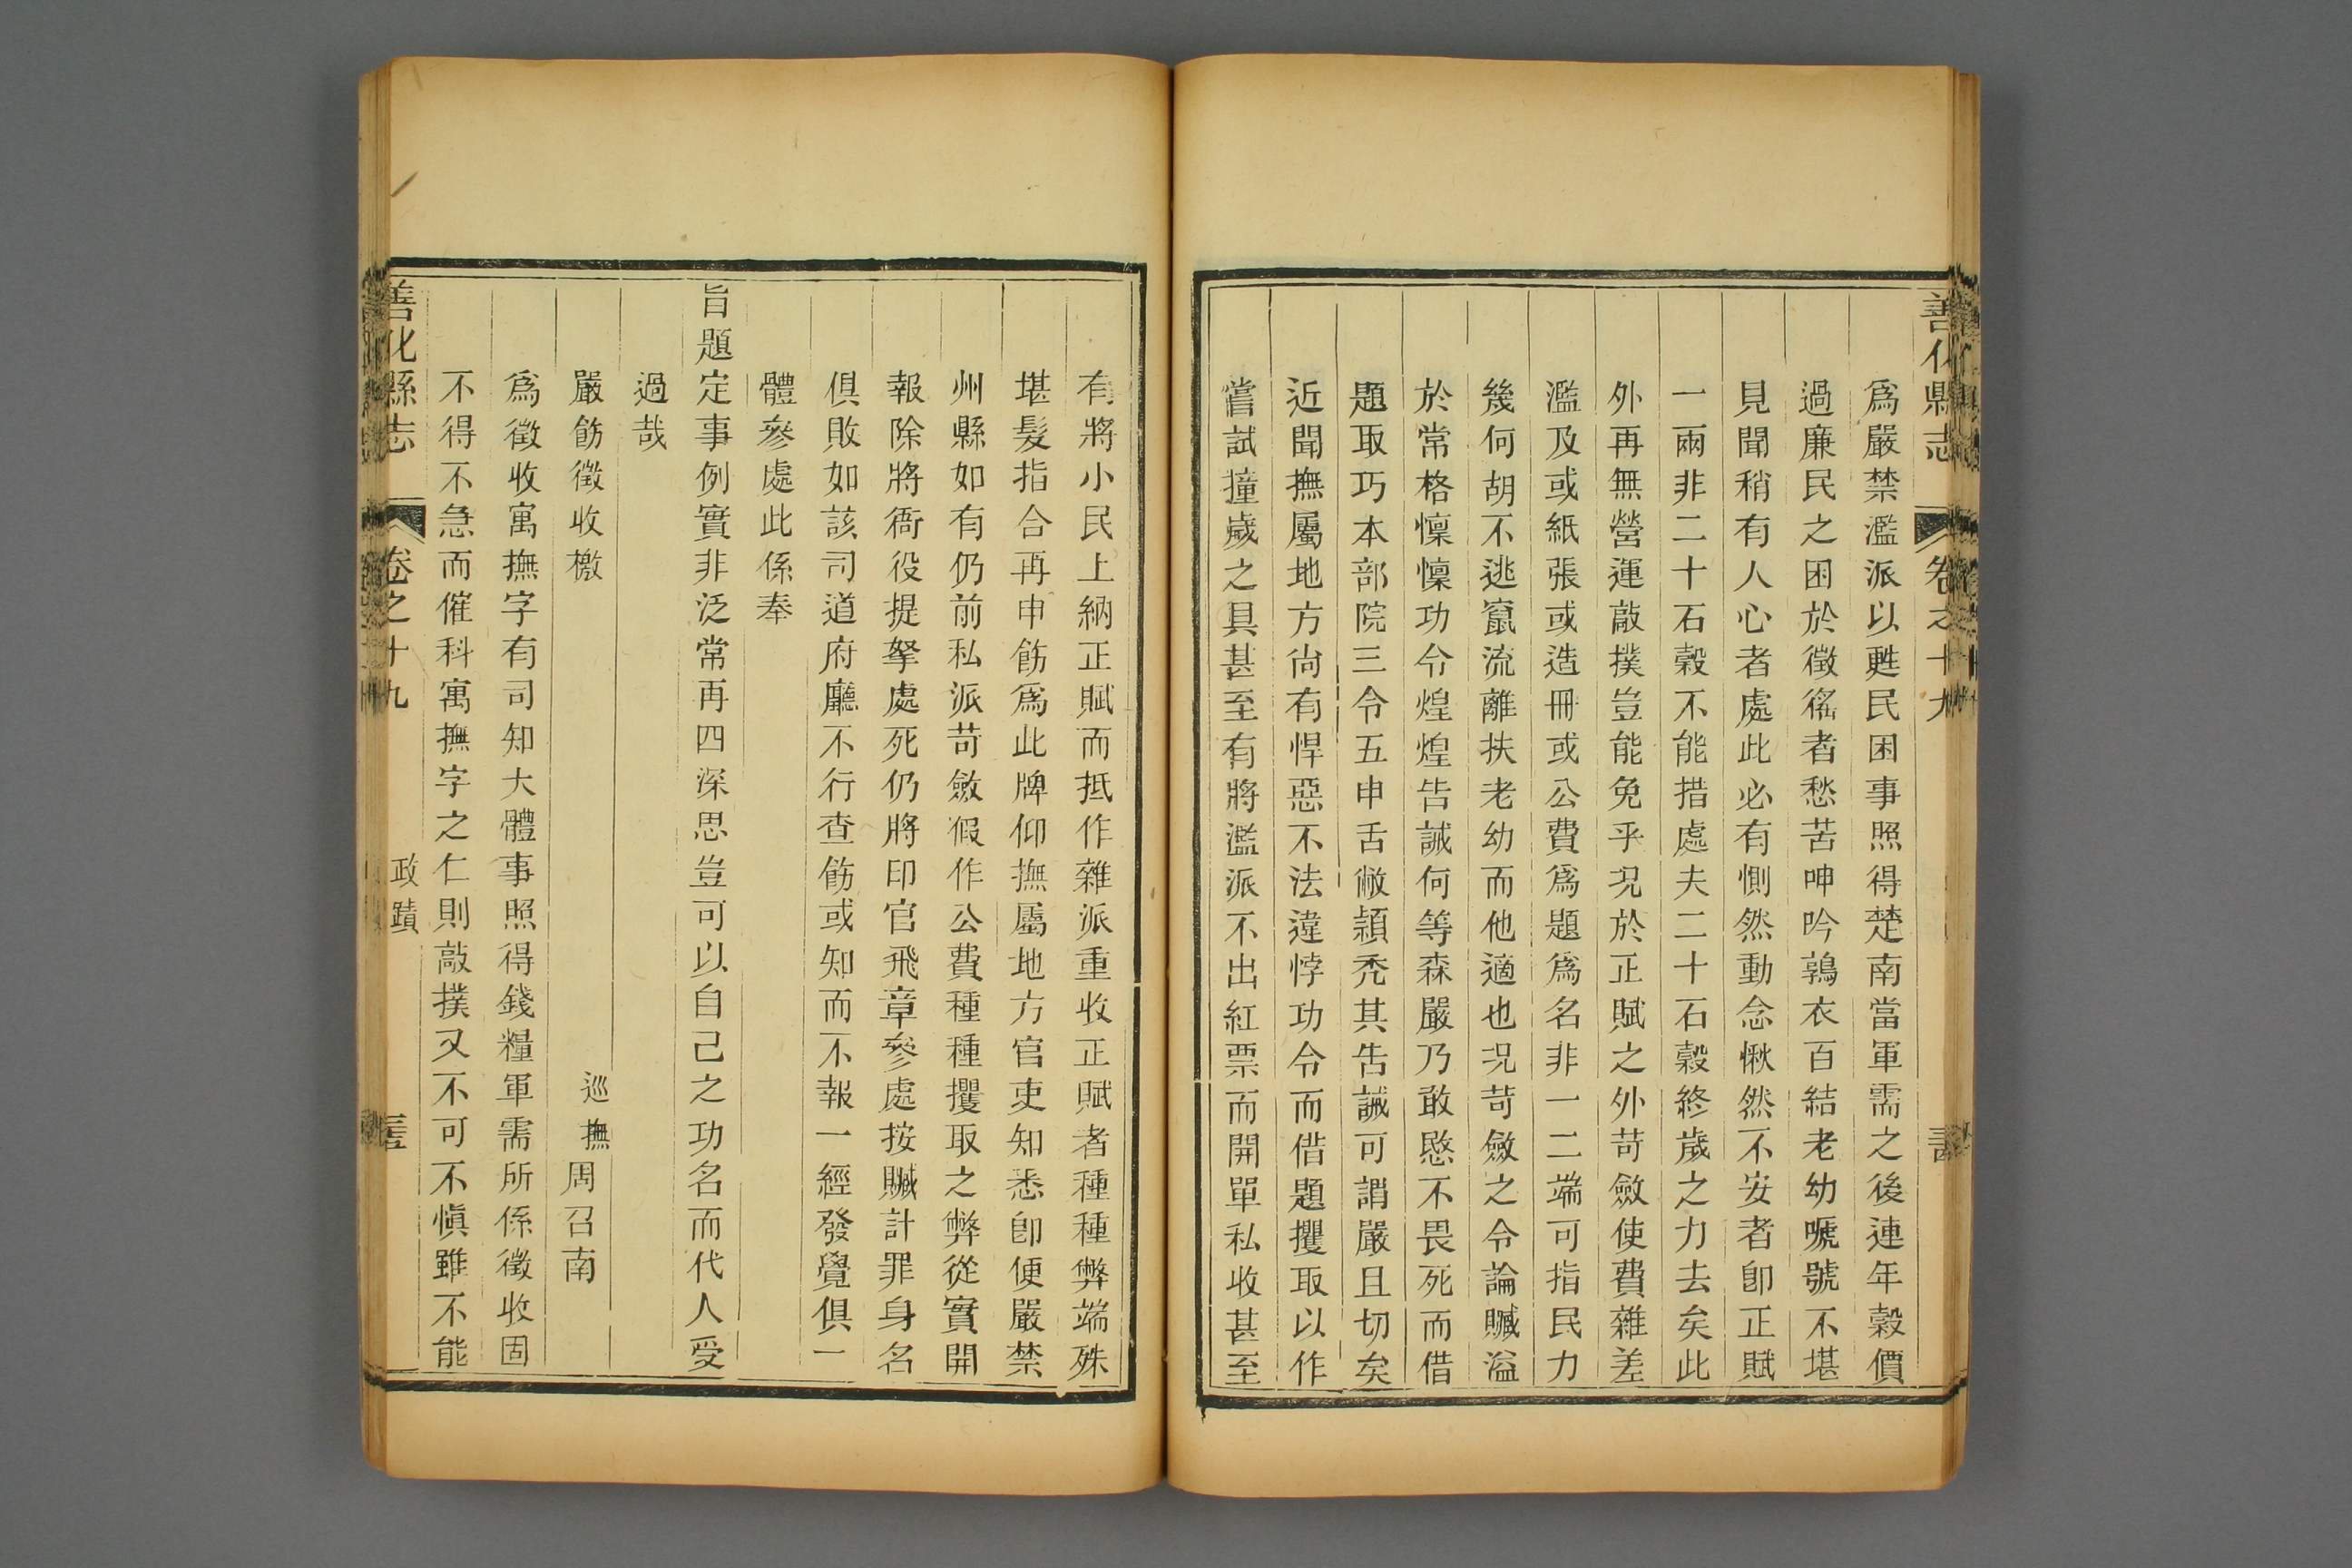 善化縣志 卷之十九
爲嚴禁濫派以甦民困事照得楚南當軍需之後連年穀價
過廉民之困於徵徭者愁苦呻吟鶉衣百結老幼嗁號不堪
見聞稍有人心者處此必有惻然動念愀然不安者卽正賦
一兩非二十石穀不能措處夫二十石穀終歲之力去矣此
外再無營運敲撲豈能免乎况於正賦之外苛斂使費雜差
濫及或紙張或造冊或公費爲題爲名非一二端可指民力
幾何胡不逃竄流離扶老幼而他適也况苛斂之令論贓溢
於常格懍懍功令煌煌告誡何等森嚴乃敢愍不畏死而借
題取巧本部院三令五申舌敝頴禿其告誡可謂嚴且切矣
近聞撫屬地方尙有悍惡不法違悖功令而借題攫取以作
嘗試撞歲之具甚至有將濫派不出紅票而開單私收甚至
有將小民上納正賦而抵作雜派重收正賦者種種弊端殊
堪髮指合再申飭爲此牌仰撫屬地方官吏知悉卽便嚴禁
州縣如有仍前私派苛斂假作公費種種攫取之弊從實開
報除將衙役提拏處死仍將印官飛章參處按贓計罪身名
俱敗如該司道府廳不行查飭或知而不報一經發覺俱一
體參處此係奉
旨題定事例實非泛常再四深思豈可以自己之功名而代人受
過哉
嚴飭徵收檄 巡撫周召南
爲徵收寓撫字有司知大體事照得錢糧軍需所係徵收固
不得不急而催科寓撫字之仁則敲撲又不可不愼雖不能
善化縣志 卷之十九 政蹟